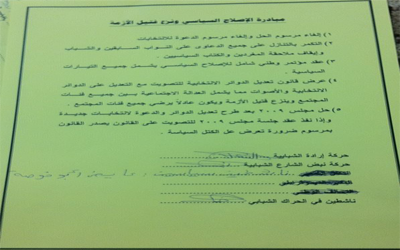 مبادرة الإصلاح السياسي ونزع فتيل الأزمة
١) إلغاء مرسوم الحل وإلغاء مرسوم الدعوة للانتخابات
٢) التكرم بالتنازل على جميع الدعاوى على النواب السابقين والشباب
وإيقاف ملاحقة المغردين والكتاب السياسيين.
٣) عقد مؤتمر وطني شامل للإصلاح السياسي يشمل جميع التيارات
السياسية.
٤) عرض قانون تعديل الدوائر الانتخابية للتصويت مع تعديل على الدوائر
الانتخابية والأصوات، مما يشمل العدالة الاجتماعية بين جميع فئات
المجتمع وينزع فتيل الأزمة ويكون عادلاً يرضي جميع فئات المجتمع.
٥) حل مجلس ٢٠٠٩ بعد طرح تعديل الدوائر والدعوة لانتخابات جديدة
وإذا نفذ عقد جلسة مجلس ٢٠٠٩ للتصويت على القانون يصدر القانون
بمرسوم ضرورة لعرض عل الكتل السياسة.
حركة إرادة الشبابية
حركة نبض الشارع الشبابية
ناشطين في الحراك الشبابي